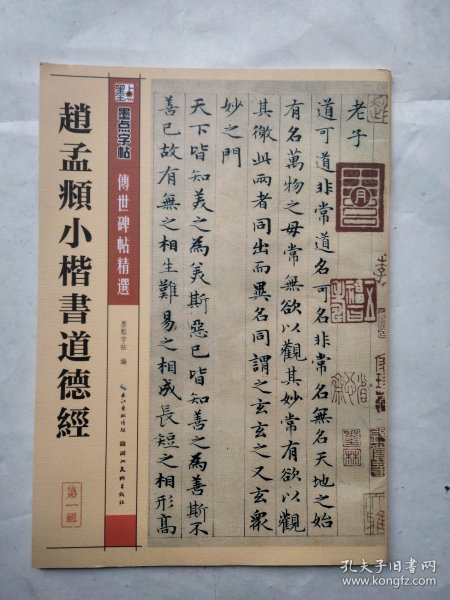 墨点
墨点字帖
傳世碑帖精選
趙孟頫小楷書道德經
第一輯
墨點字帖 編
长江出版传媒
湖北美術出版社
老子
道可道非常道名可名非常名無名天地之始
有名萬物之母常無欲以觀其妙常有欲以觀
其徼此兩者同出而異名同謂之玄玄之又玄衆
妙之門
天下皆知美之為美斯惡已皆知善之為善斯不
善已故有無之相生難易之相成長短之相形高
孔夫子旧书网
www.kongfz.com